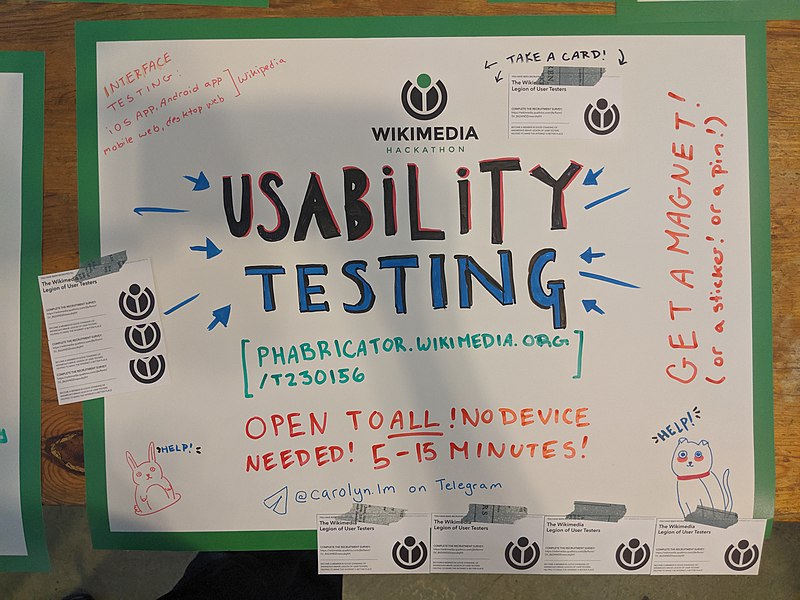 INTERFACE
TESTING:
iOS APP, Android app
mobile web, desktop web
] Wikipedia
↙ TAKE A CARD! ↘
The Wikimedia
Legion of User Testers
COMPLETE THE RECRUITMENT SURVEY:
WIKIMEDIA
HACKATHON
USABILITY
TESTING
[PHABRICATOR.WIKIMEDIA.ORG
/T230156]
OPEN TO ALL! NO DEVICE
NEEDED! 5-15 MINUTES!
@carolyn.lm on Telegram
GET A MAGNET!
(or a sticker! or a pin!)
The Wikimedia
Legion of User Testers
COMPLETE THE RECRUITMENT SURVEY:
COMPLETE THE RECRUITMENT SURVEY:
COMPLETE THE RECRUITMENT SURVEY:
HELP!
HELP!
The Wikimedia
Legion of User Testers
COMPLETE THE RECRUITMENT SURVEY:
The Wikimedia
Legion of User Testers
COMPLETE THE RECRUITMENT SURVEY:
The Wikimedia
Legion of User Testers
COMPLETE THE RECRUITMENT SURVEY:
The Wikimedia
Legion of User Testers
COMPLETE THE RECRUITMENT SURVEY: